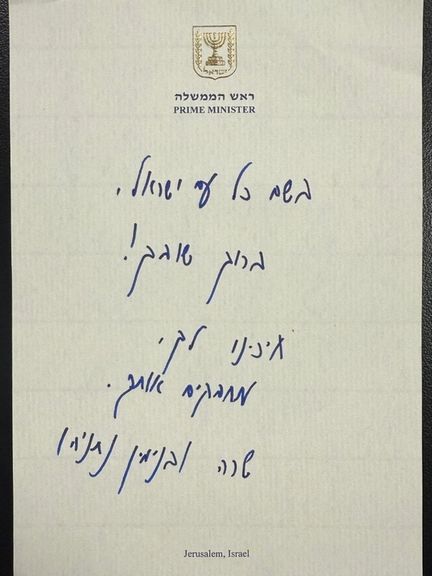 ישראל
ראש הממשלה
PRIME MINISTER
בשם כל עם ישראל,
ברוך שובך!
חיכינו לך.
מחבקים אותך.
שרה ובנימין נתניהו
Jerusalem, Israel